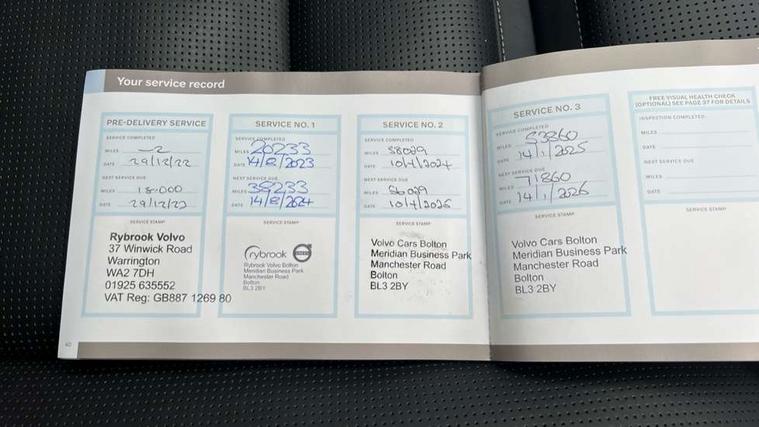 Your service record
PRE-DELIVERY SERVICE
SERVICE COMPLETED
MILES 2
DATE 29/12/22
NEXT SERVICE DUE
MILES 18000
DATE 29/12/23
SERVICE STAMP
Rybrook Volvo
37 Winwick Road
Warrington
WA2 7DH
01925 635552
VAT Reg: GB887 1269 80
SERVICE NO. 1
SERVICE COMPLETED
MILES 20233
DATE 14/8/2023
NEXT SERVICE DUE
MILES 38233
DATE 14/8/2024
SERVICE STAMP
rybrook
Rybrook Volvo Bolton
Meridian Business Park
Manchester Road
Bolton
BL3 2BY
SERVICE NO. 2
SERVICE COMPLETED
MILES 38029
DATE 10/4/2024
NEXT SERVICE DUE
MILES 56029
DATE 10/4/2025
SERVICE STAMP
Volvo Cars Bolton
Meridian Business Park
Manchester Road
Bolton
BL3 2BY
SERVICE NO. 3
SERVICE COMPLETED
MILES 53860
DATE 14/1/2025
NEXT SERVICE DUE
MILES 71860
DATE 14/1/2026
SERVICE STAMP
Volvo Cars Bolton
Meridian Business Park
Manchester Road
Bolton
BL3 2BY
FREE VISUAL HEALTH CHECK
(OPTIONAL) SEE PAGE 37 FOR DETAILS
INSPECTION COMPLETED
MILES
DATE
NEXT SERVICE DUE
MILES
DATE
SERVICE STAMP